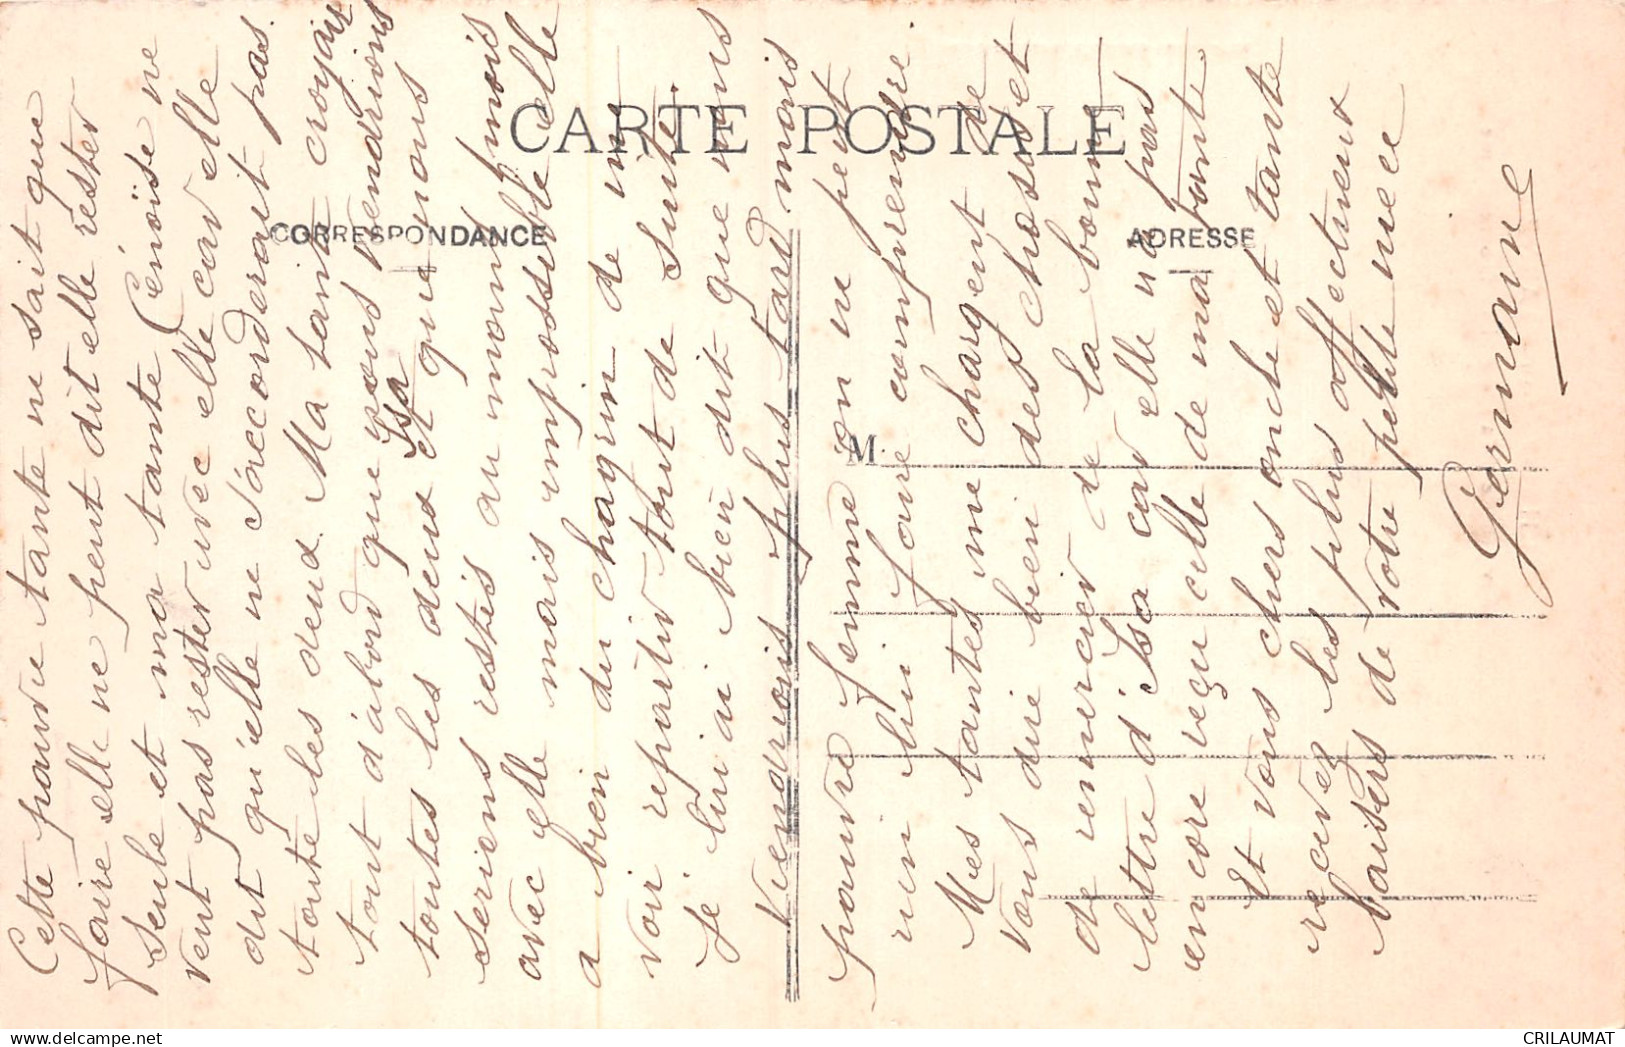 CARTE POSTALE
CORRESPONDANCE
ADRESSE
M.
Cette pauvre tante ne sait que
faire elle ne peut dit elle rester
seule et ma tante Cénoïse ne
veut pas rester avec elle car elle
dit qu'elle ne s'accorderait pas
toute les deux. Ma tante croyait
tout d'abord que nous viendrions
Isa
toutes les deux et que nous
seriens restés au moins 1 mois
avec elle mais impossible elle
a bien du chagrin de me
voir repartir tout de suite.
Je lui ai bien dit que nous
viendrions plus tard mais
pauvre femme on ne peut
rien lui faire comprendre.
Mes tantes me chargent de
vous dire bien des choses et
de remercier de la bonne
lettre d'Isa car elle n'a pas
encore reçu celle de ma tante.
Et vous chers oncle et tante
recevez les plus affectueux
baisers de votre petite nièce
Germaine
CRILAUMAT